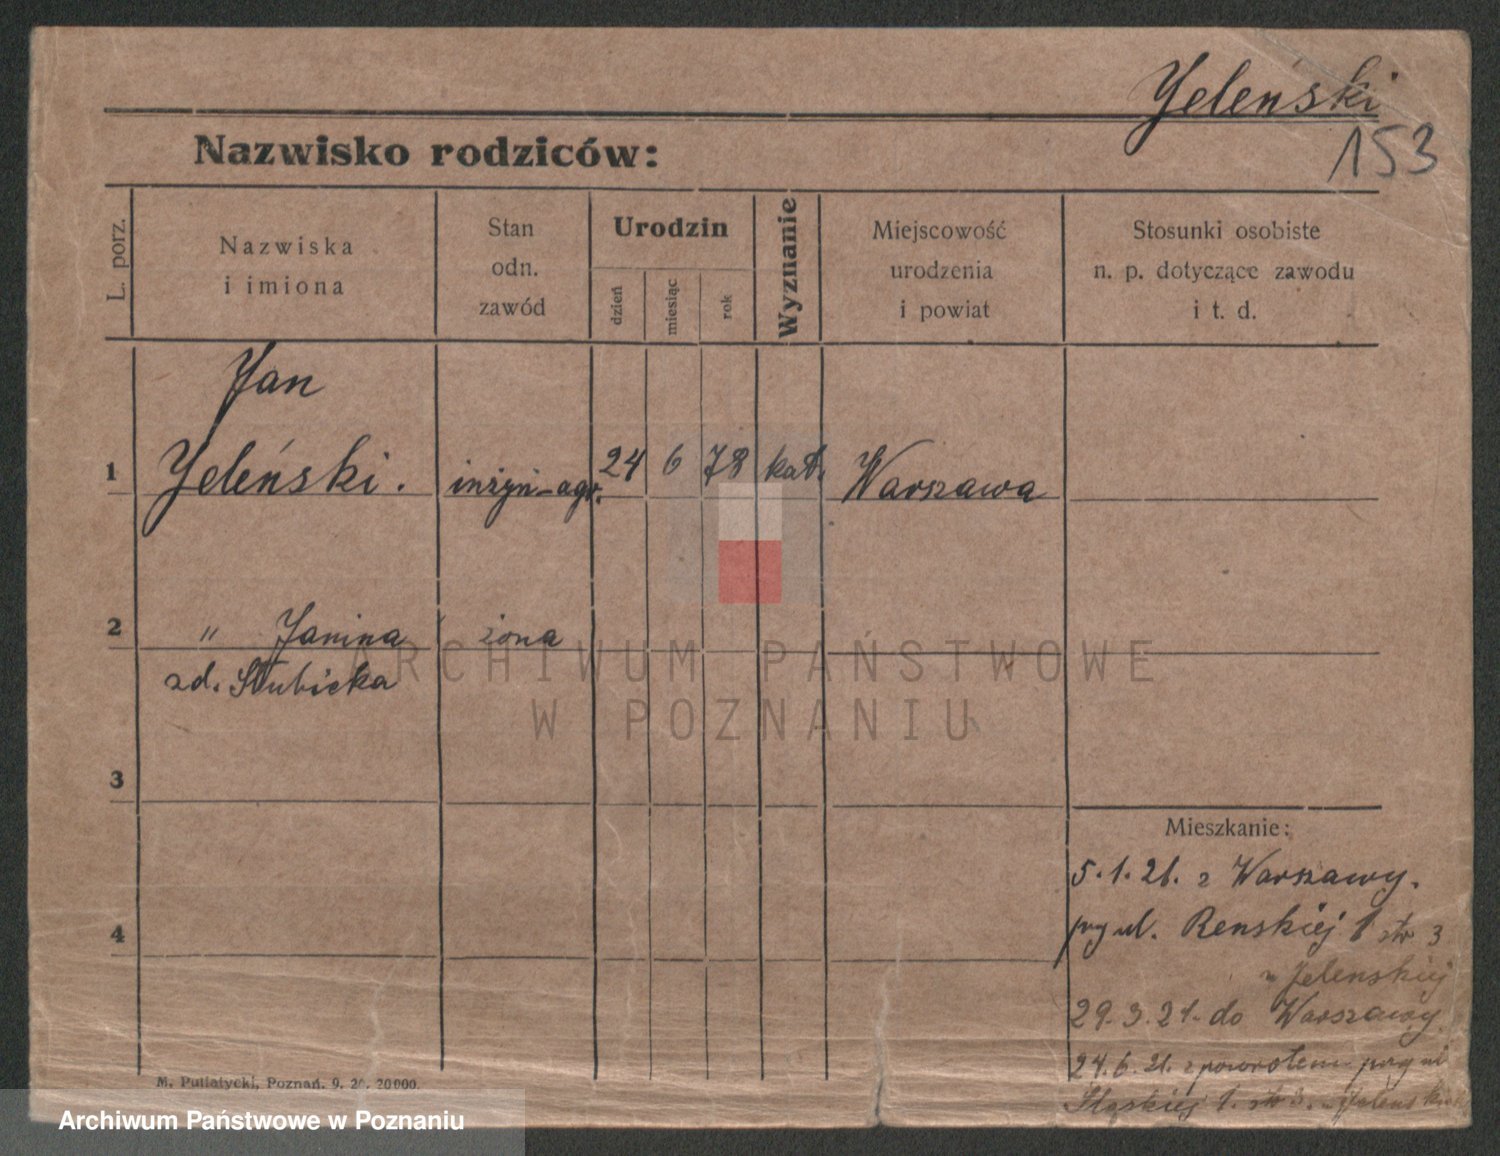 Jeleński
153
Nazwisko rodziców:
L. porz.
Nazwiska
i imiona
Stan
odn.
zawód
Urodzin
dzień
miesiąc
rok
Wyznanie
Miejscowość
urodzenia
i powiat
Stosunki osobiste
n. p. dotyczące zawodu
i t. d.
Jan
1 Jeleński. inżyn-agr. 24 6 78 kat. Warszawa
2 " Janina żona
zd. Słubicka
ARCHIWUM PAŃSTWOWE
W POZNANIU
3
Mieszkanie:
5.1.21. z Warszawy.
4 pry ul. Renskiej 1 str 3
u Jelenskiej
29.3.21. do Warszawy
24.6.21. z powrotem pry ul
Śląskiej 1. str 3. u Jelenskiej
M. Putiatycki, Poznań. 9. 20. 20000.
Archiwum Państwowe w Poznaniu